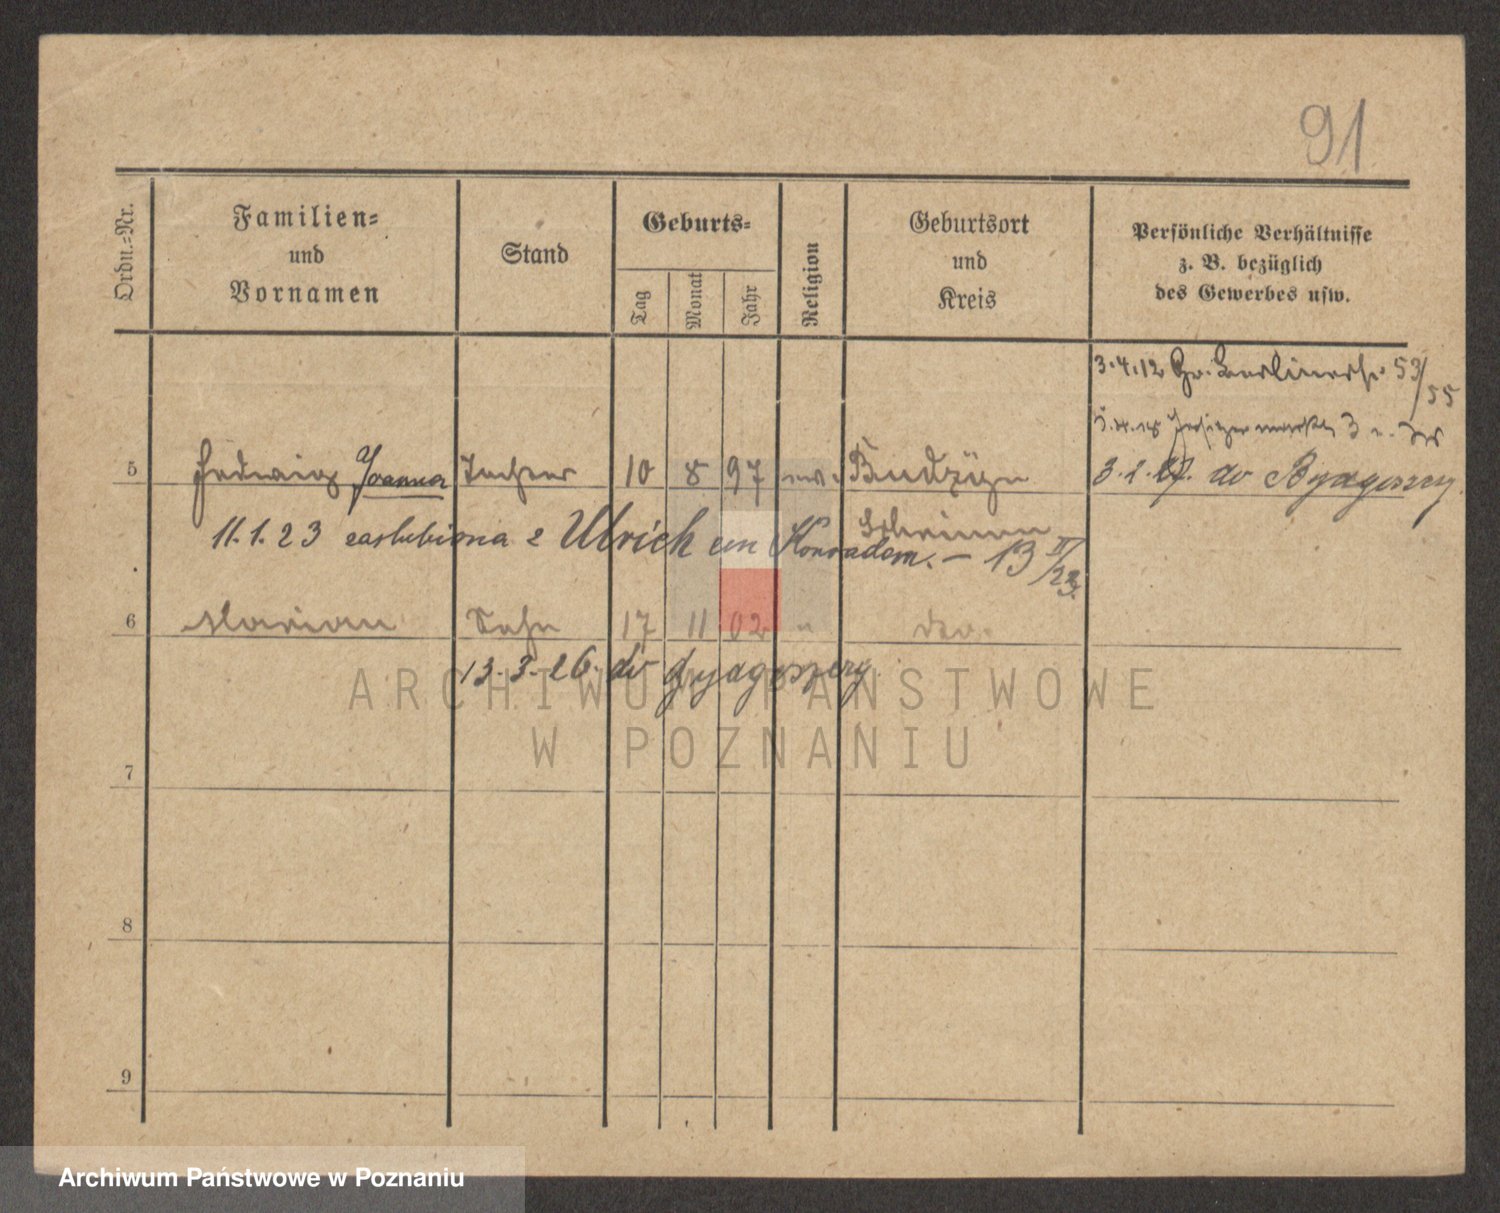 91
Ordn.=Nr.
Familien=
und
Vornamen
Stand
Geburts=
Tag
Monat
Jahr
Religion
Geburtsort
und
Kreis
Persönliche Verhältnisse
z. B. bezüglich
des Gewerbes usw.
3.4.12 Gr. Berlinerstr. 53/55
3 u.
5 Hedwig Joanna Tochter 10 8 97 ev. Budzyn
3.2. do Bydgoszczy
11.1.23 zaślubiona z Ulrich em Konradem. – 13 II/23.
6 Marian Sohn 17 11 02 " do.
13.3.26. do Bydgoszczy
7
8
9
ARCHIWUM PAŃSTWOWE
W POZNANIU
Archiwum Państwowe w Poznaniu